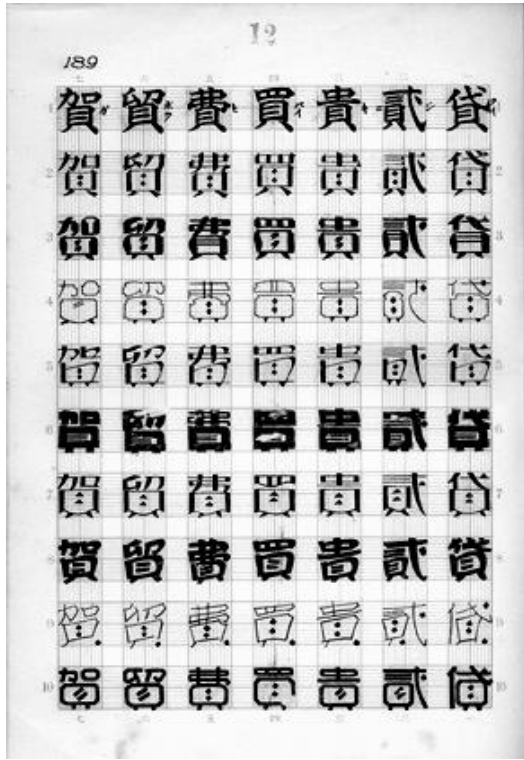 12
189
七 六 五 四 三 二 一
1 賀 貿 費 買 貴 貳 貸
2 賀 貿 費 買 貴 貳 貸 2
3 賀 貿 費 買 貴 貳 貸 3
4 賀 貿 費 買 貴 貳 貸 4
5 賀 貿 費 買 貴 貳 貸 5
6 賀 貿 費 買 貴 貳 貸 6
7 賀 貿 費 買 貴 貳 貸 7
8 賀 貿 費 買 貴 貳 貸 8
9 賀 貿 費 買 貴 貳 貸 9
10 賀 貿 費 買 貴 貳 貸 10
七 六 五 四 三 二 一